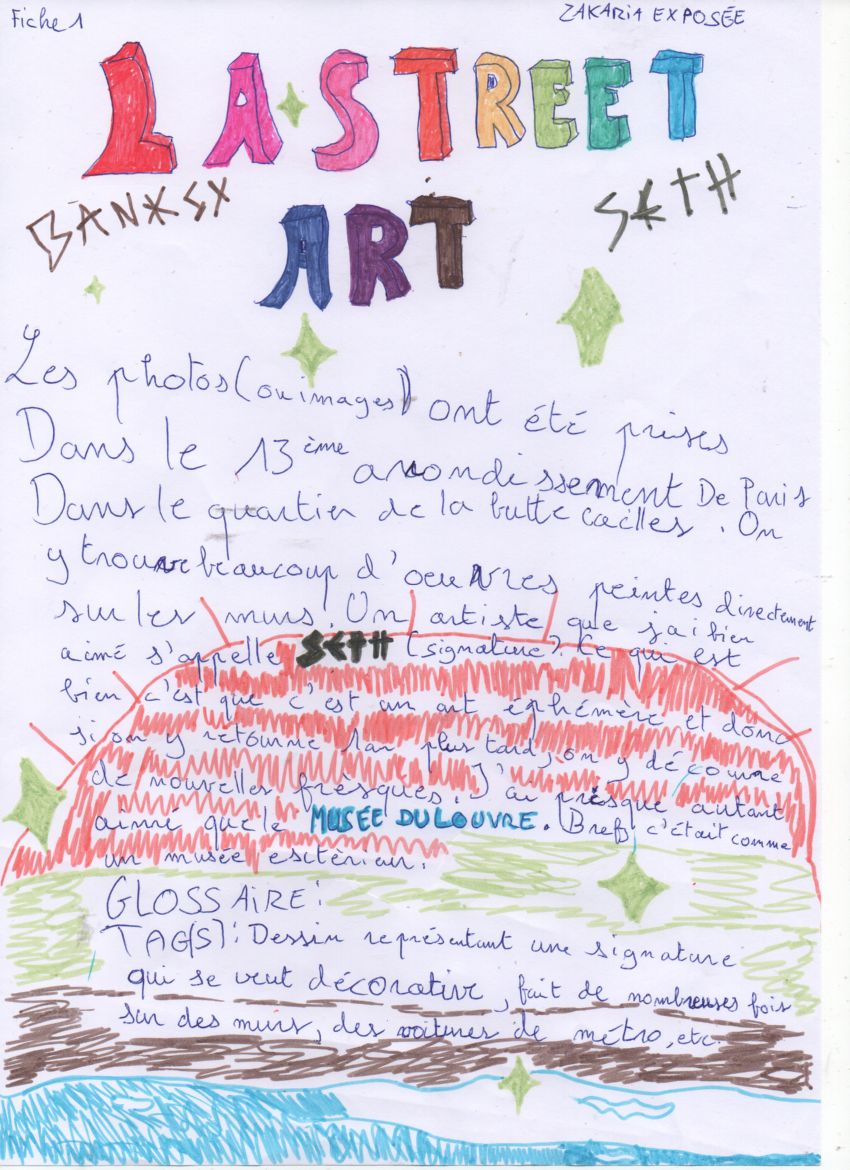 Fiche 1
ZAKARIA EXPOSÉE
LA STREET
BANKSY
SETH
ART
Les photos (ou images) ont été prises
Dans le 13ème arrondissement De Paris
Dans le quartier de la butte cailles. On
y trouve beaucoup d'oeuvres peintes directement
sur les murs! Un artiste que j'ai bien
aimé s'appelle SETH (signature). Ce qui est
bien c'est que c'est un art éphémère et donc
si on y retourne l'an plus tard, on y découvre
de nouvelles frèsques. J'ai prèsque autant
aimé que le MUSÉE DU LOUVRE. Bref c'était comme
un musée esctèrieur.
GLOSSAIRE:
TAG(S): Dessin représentant une signature
qui se veut décorative, fait de nombreuses fois
sur des murs, des voitures de métro, etc.